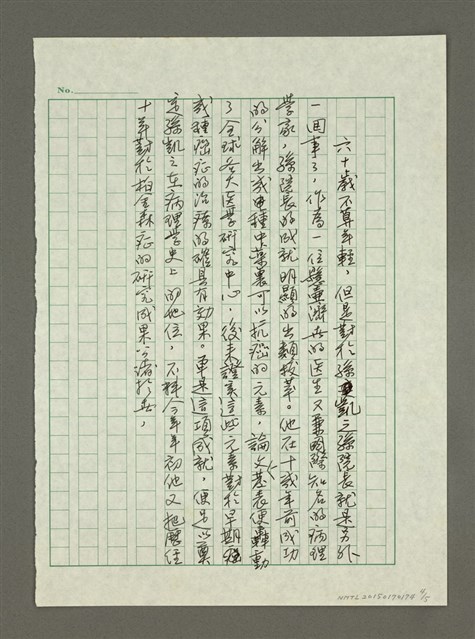 No.
六十歲不算年輕，但是對於孫凱之孫院長就是另外
一回事了，作為一位懸壺濟世的医生又兼國際知名的病理
學家，孫院長的成就明顯的出類拔萃。他在十幾年前成功
的分解出幾種中藥裏可以抗癌的元素，論文發表便轟動
了全球各大医學研究中心，後來證實這些元素對於早期
或種癌症的治療的確具有効果。單是這項成就，便足以奠
定孫凱之在病理學史上的地位，不料今年年初他又把歷經
十年對於柏金森症的研究成果公諸於世，
NMTL20150190174 4/5